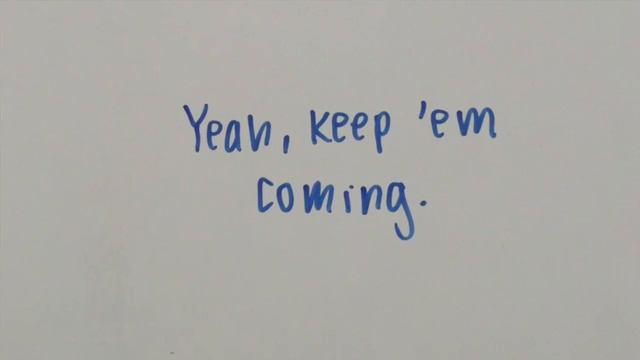 Yeah, keep 'em
coming.